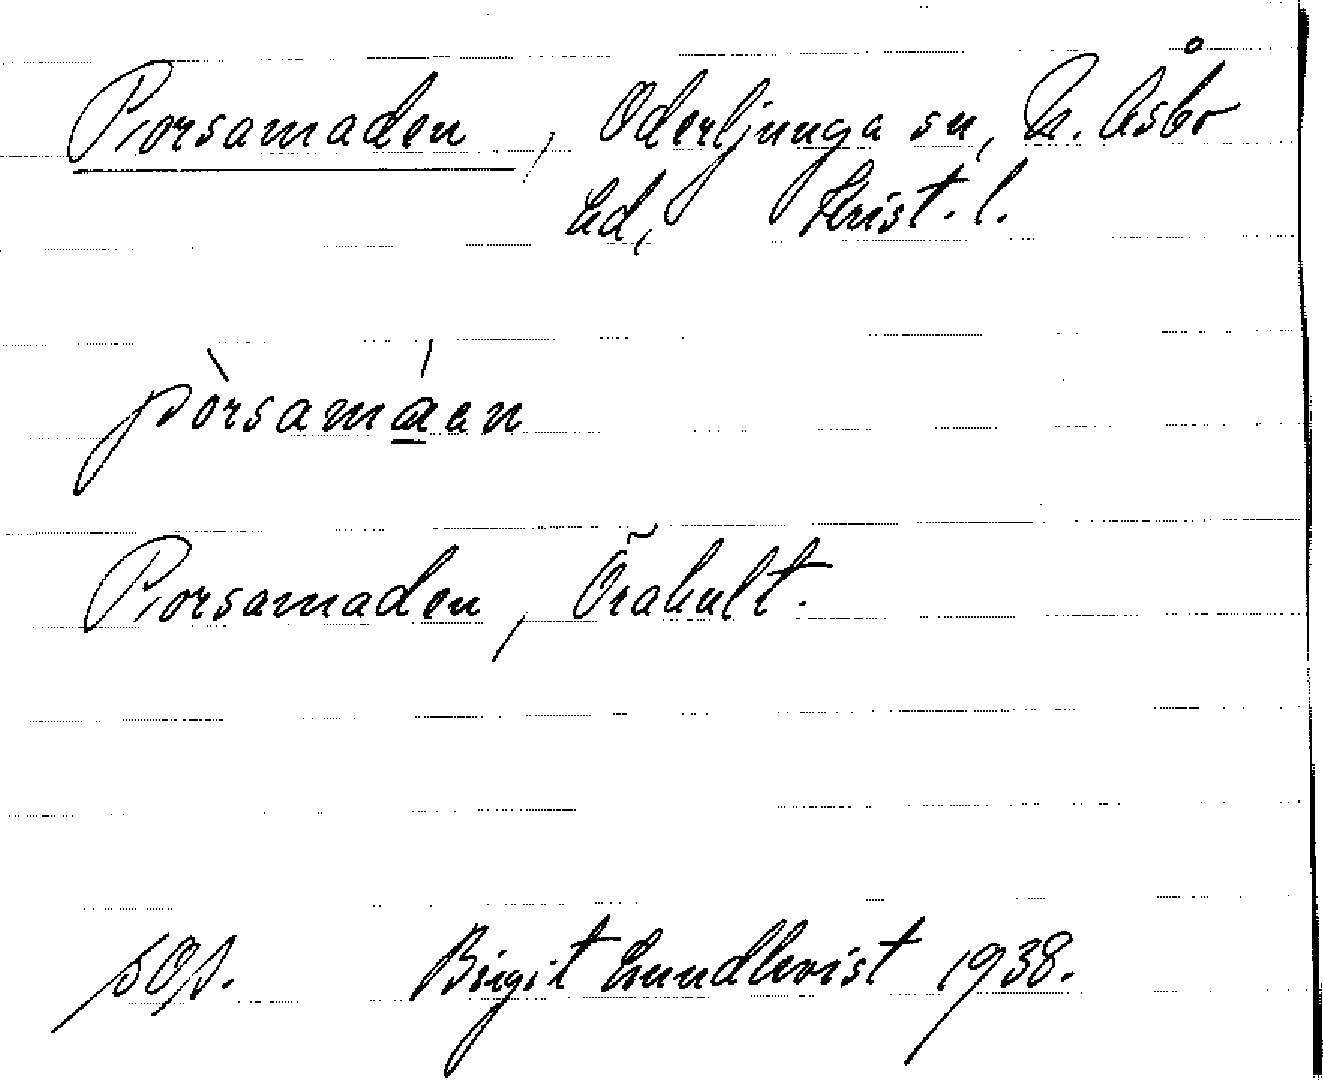 Porsamaden, Oderljunga sn, N. Åsbo
hd, Krist. l.
pòrsamáen
Porsamaden, Örahult.
sOp. Birgit Lundkvist 1938.